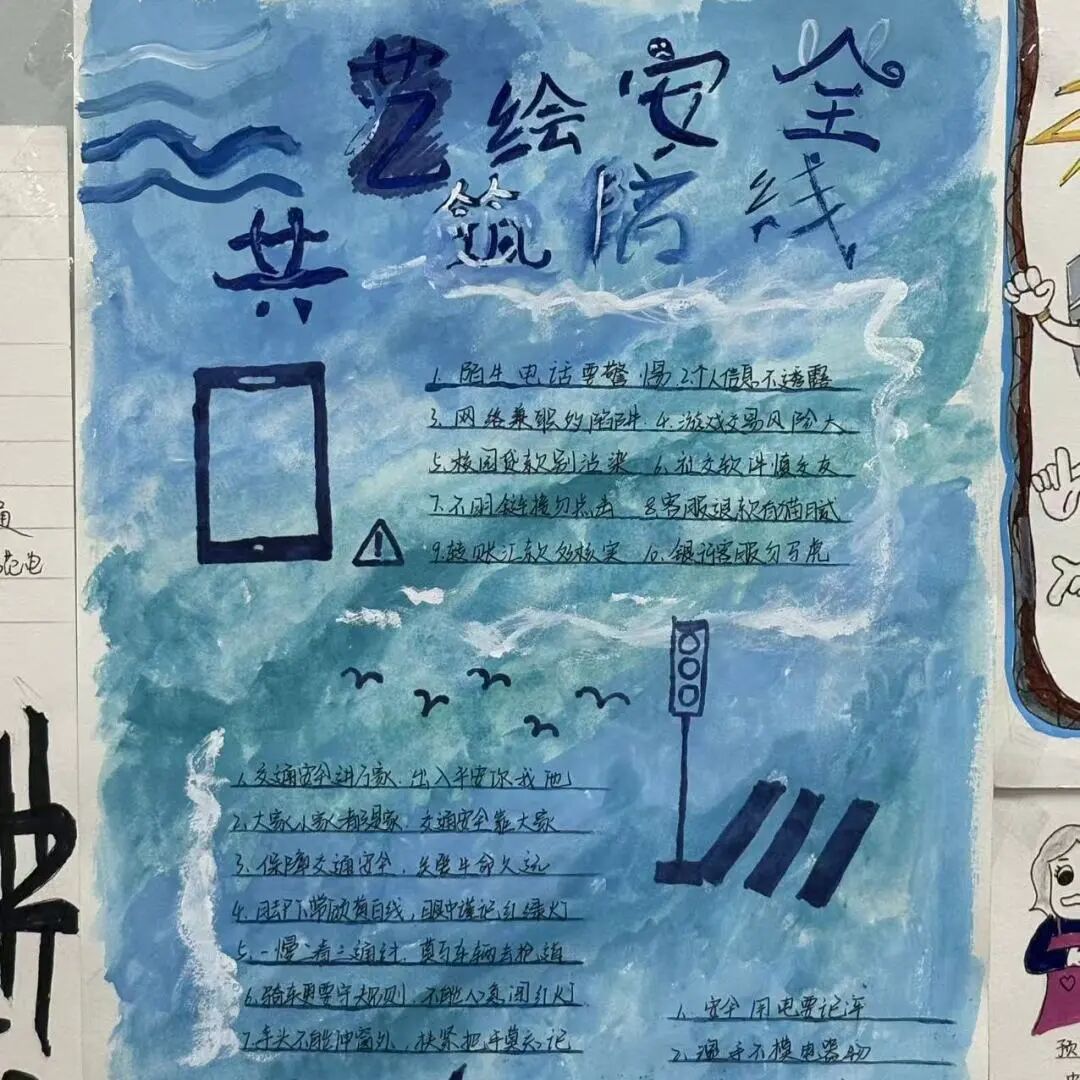 艺绘安全
共筑防线
1. 陌生电话要警惕 2个人信息不透露
3. 网络兼职多陷阱 4. 游戏交易风险大
5. 校园贷款别沾染 6. 社交软件慎交友
7. 不明链接勿点击 8客服退款有猫腻
9. 转账汇款多核实 10. 银行客服勿马虎
1. 交通安全进万家. 出入平安你我他
2. 大家小家都是家. 交通安全靠大家
3. 保障交通安全. 关爱生命久远
4. 脚下常顾黄白线, 眼中谨记红绿灯
5. 一慢二看三通过. 莫与车辆去抢道
6. 骑车更要守规则 不能心急闯红灯
7. 手头不能伸窗外, 扶紧把手莫忘记
1. 安全用电要记牢
2. 湿手不摸电器物
通
花电
预